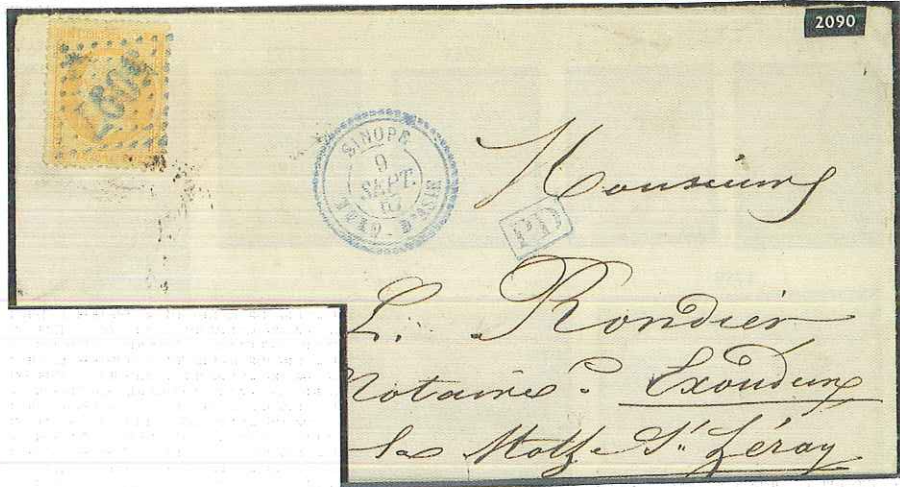 2090
SINOPE
9
SEPT.
67
TURQ. D'ASIE
PD
Monsieur
L. Rondier
Notaire
Exoudun
la Mothe St. Héray